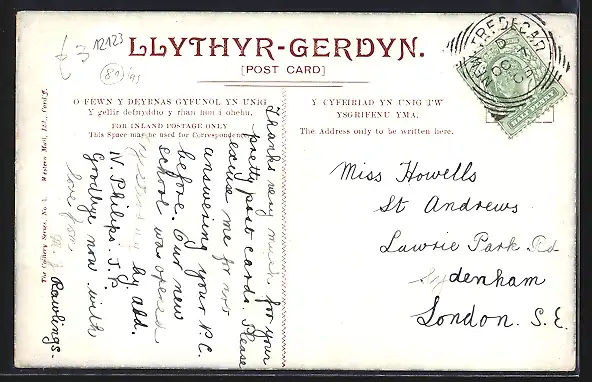 £3
12123
(81)
95
LLYTHYR-GERDYN.
[POST CARD]
O FEWN Y DEYRNAS GYFUNOL YN UNIG
Y gellir defnyddio y rhan hon i ohebu.
FOR INLAND POSTAGE ONLY
This Space may be used for Correspondence
Y CYFEIRIAD YN UNIG I'W
YSGRIFENU YMA.
The Address only to be written here.
NEW TREDEGAR
Western Mail, Ltd., Cardiff.
Thanks very much for your
pretty post cards. Please
excuse me for not
answering your P.C.
before. Our new
school was opened
yesterday by ald.
N. Philips, J.P.
Goodbye now with
love from
M. J. Rawlings.
Miss Howells
St Andrews
Lawrie Park Rd
Sydenham
London. S.E.